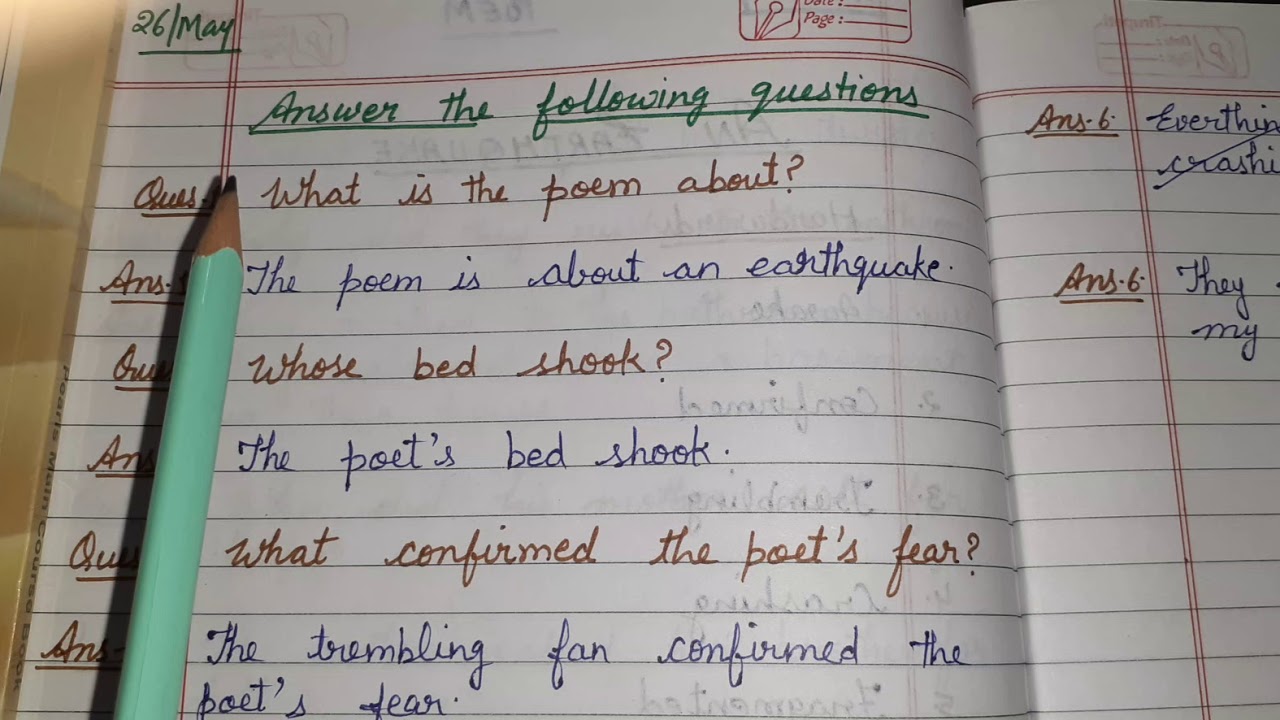 26/May
Date :
Page :
Answer the following questions
Ques. What is the poem about?
Ans. The poem is about an earthquake.
Ques Whose bed shook?
Ans The poet's bed shook.
Ques What confirmed the poet's fear?
Ans The trembling fan confirmed the
poet's fear.
Ans.6. Everthin
crashi
Ans.6. They
my